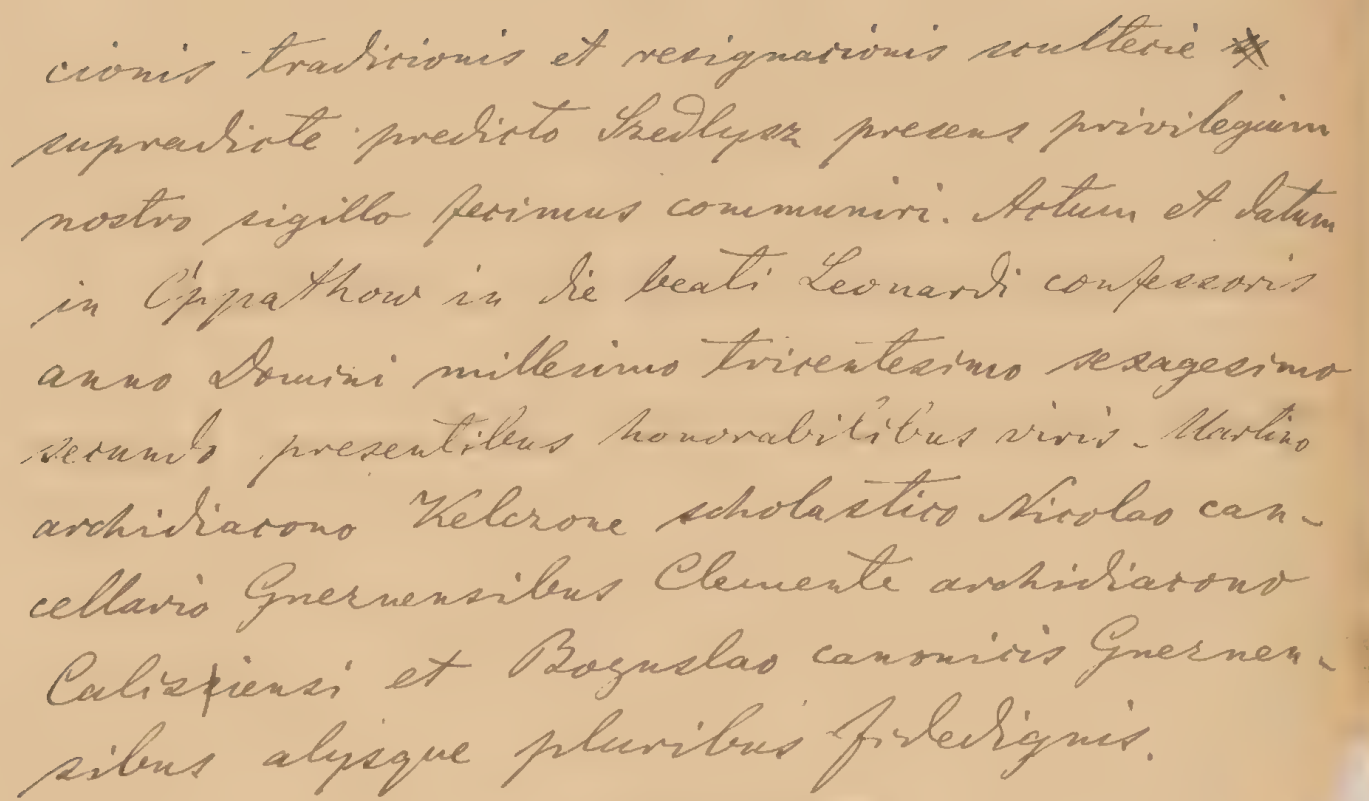 cionis tradicionis et resignacionis scultecie
supradicte predicto Szedlysz presens privilegium
nostro sigillo fecimus communiri. Actum et datum
in Oppathow in die beati Leonardi confessoris
anno Domini millesimo tricentesimo sexagesimo
secundo presentibus honorabilibus viris. Martino
archidiacono Kelczone scholastico Nicolao can-
cellario Gneznensibus Clemente archidiacono
Calisiensi et Boguslao canonicis Gneznen-
sibus alysque pluribus fidedignis.